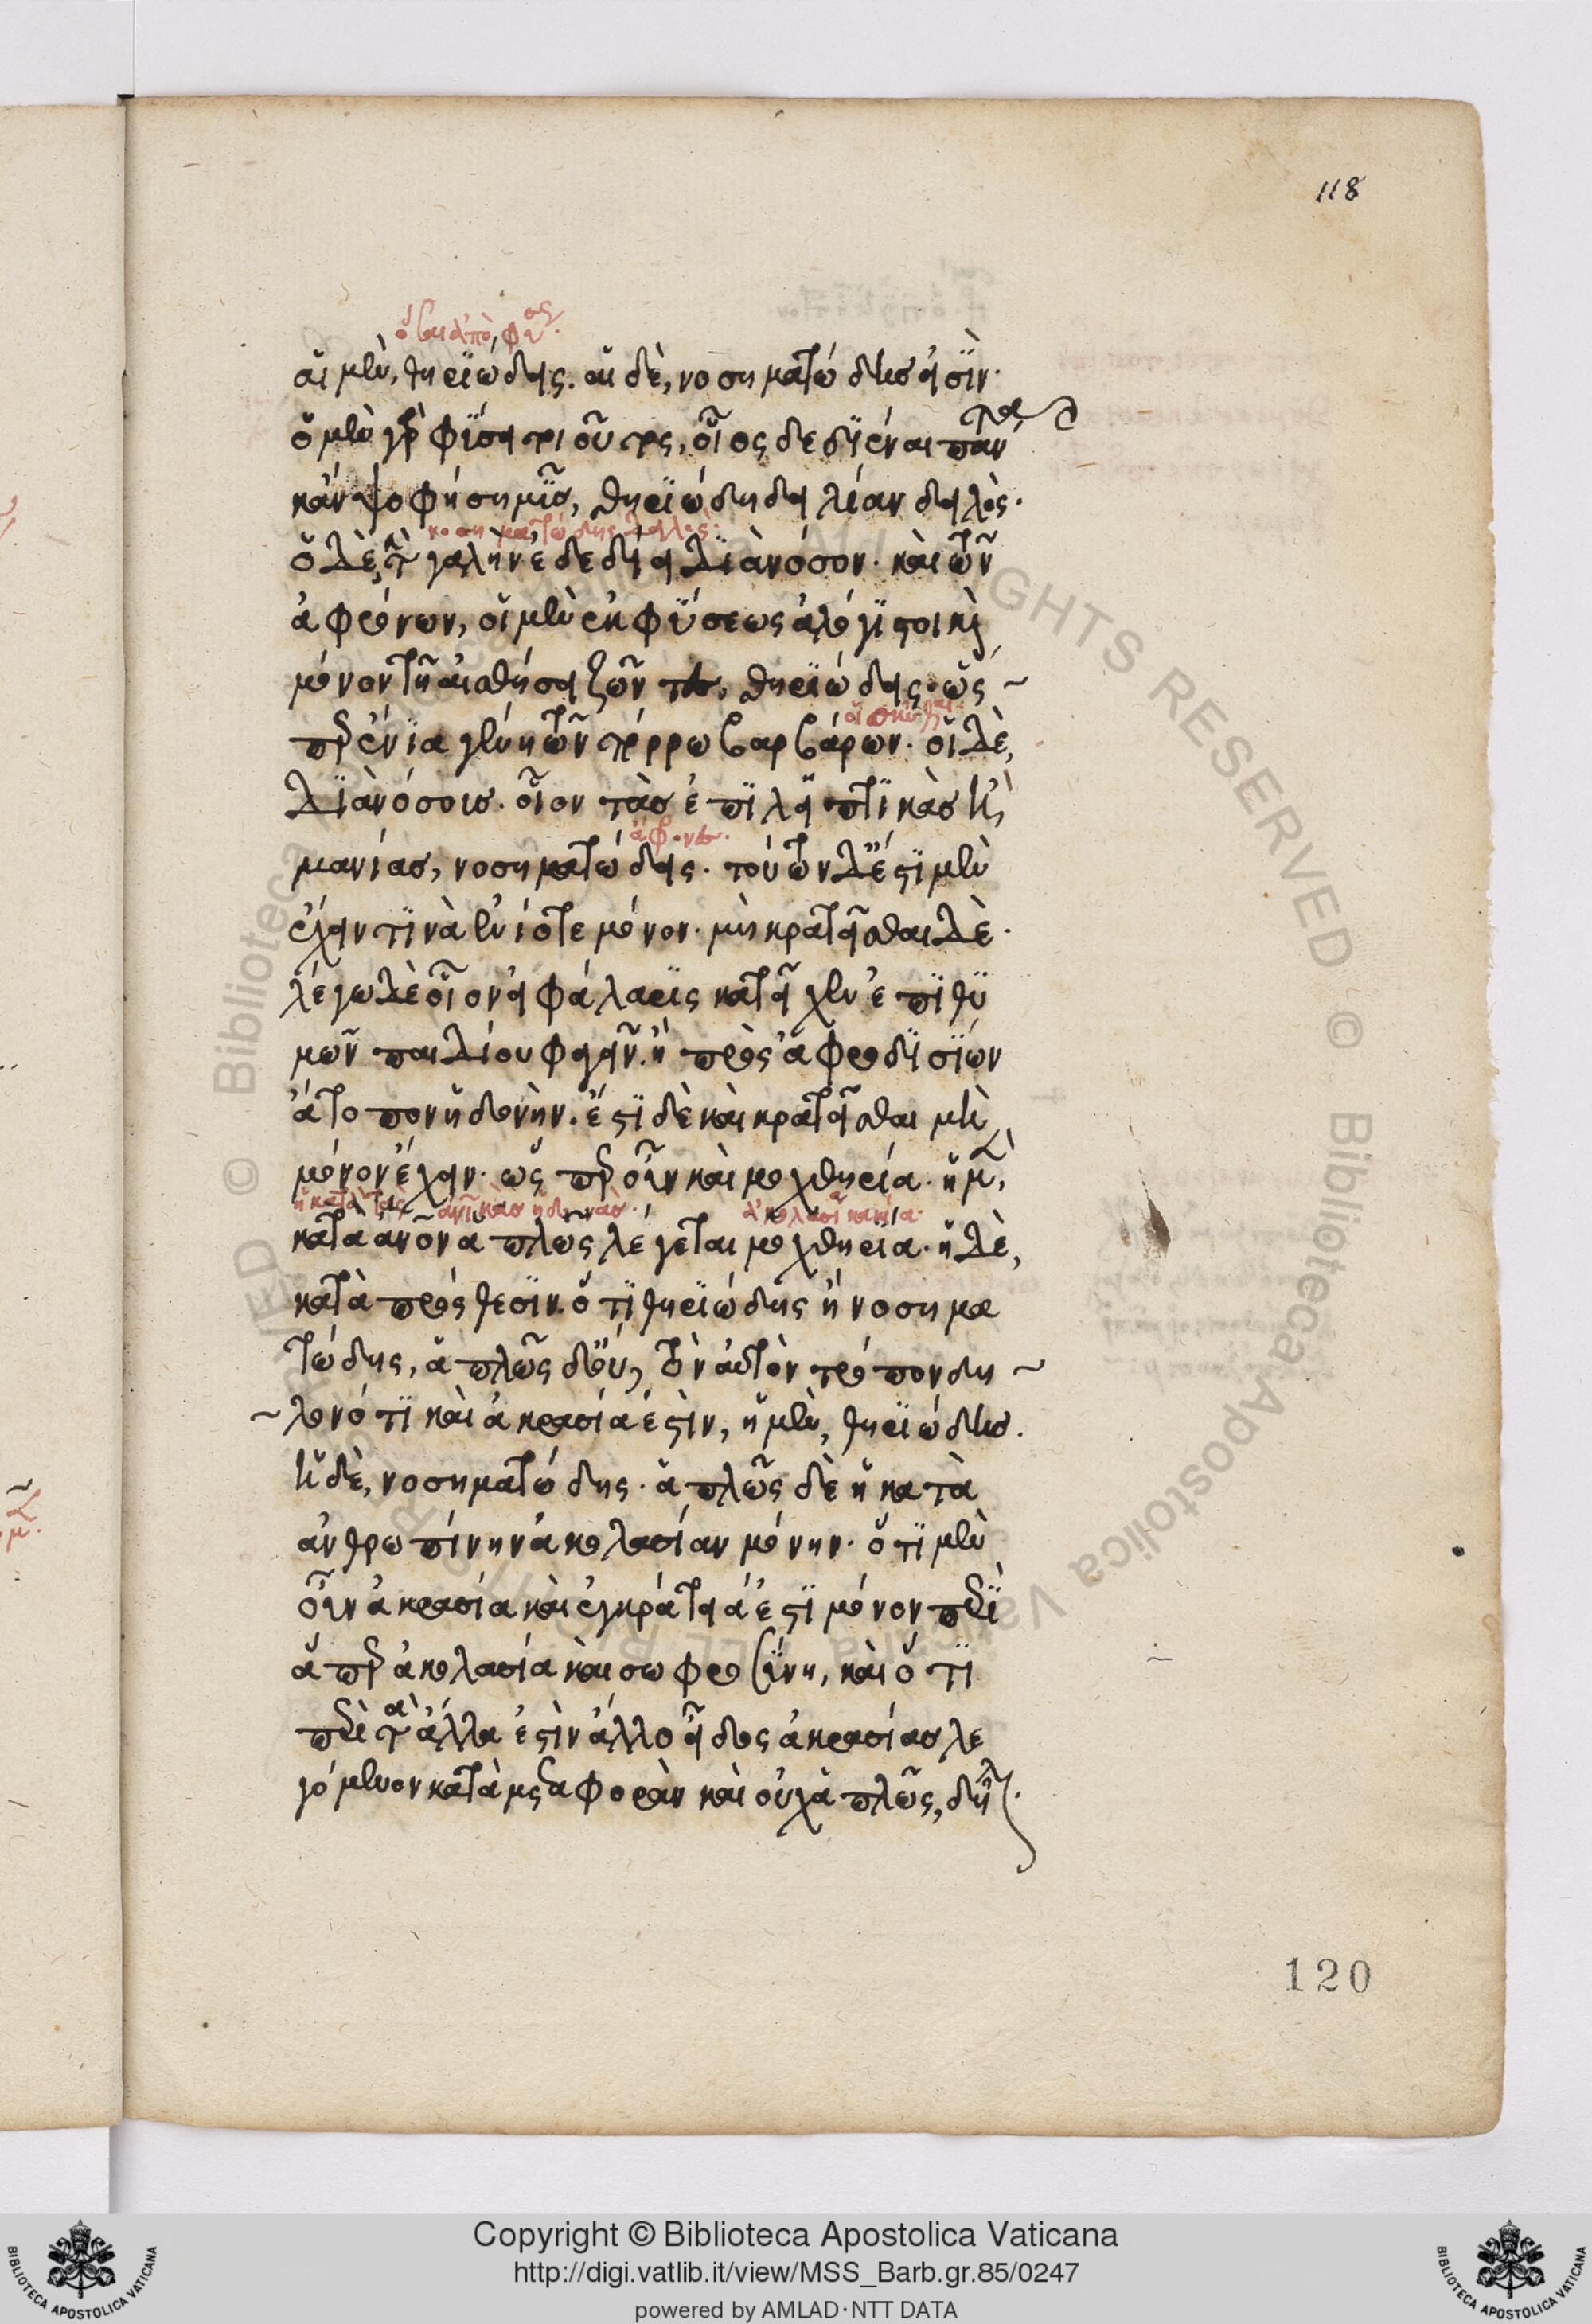 118
αἱ μὲν, θηριώδεις. αἱ δὲ, νοσηματώδεις εἰσὶν.
ὁ μὲν γὰρ φύσει τοιοῦτος, οἷος δεδιέναι πάντα
κἂν ψοφήσῃ μῦς, θηριώδη δειλίαν δειλός.
νοσηματώδης δειλός.
ὁ δὲ, τὴν γαλῆν ἐδεδίει διὰ νόσον. καὶ τῶν
ἀφρόνων, οἱ μὲν ἐκ φύσεως ἀλόγιστοι καὶ
μόνον τῇ αἰσθήσει ζῶντες, θηριώδεις. ὥσ
περ ἔνια γένη τῶν πόρρω βαρβάρων. οἱ δὲ,
διὰ νόσους. οἷον τὰς ἐπιληπτικὰς ἢ
ἄφρονες.
μανίας, νοσηματώδεις. τούτων δ' ἔστι μὲν
ἔχειν τινὰ ἐνίοτε μόνον. μὴ κρατεῖσθαι δὲ.
λέγω δὲ οἷον εἰ φάλαρις κατεῖχεν ἐπιθυ
μῶν παιδίου φαγεῖν. ἢ πρὸς ἀφροδισίων
ἄτοπον ἡδονήν. ἔστι δὲ καὶ κρατεῖσθαι μὴ
μόνον ἔχειν. ὥσπερ οὖν καὶ μοχθηρία. ἡ μὲν,
κατὰ ἄνον ἁπλῶς λέγεται μοχθηρία. ἡ δὲ,
κατὰ πρόσθεσιν. ὅτι θηριώδης ἢ νοσημα
τώδης, ἁπλῶς δ' οὔ, τὸν αὐτὸν τρόπον δη
λον ὅτι καὶ ἀκρασία ἐστὶν, ἡ μὲν, θηριώδης.
ἡ δὲ, νοσηματώδης. ἁπλῶς δὲ ἡ κατὰ
ἀνθρωπίνην ἀκολασίαν μόνην. ὅτι μὲν
οὖν ἀκρασία καὶ ἐγκράτειά ἐστι μόνον περὶ
ἅπερ ἀκολασία καὶ σωφροσύνη, καὶ ὅτι
περὶ τὰ ἄλλα ἐστὶν ἄλλο εἶδος ἀκρασίας λε
γόμενον κατὰ μεταφορὰν καὶ οὐχ ἁπλῶς, δῆλον.
120
© Biblioteca Apostolica Vaticana ALL RIGHTS RESERVED
Copyright © Biblioteca Apostolica Vaticana
http://digi.vatlib.it/view/MSS_Barb.gr.85/0247
powered by AMLAD·NTT DATA
BIBLIOTECA APOSTOLICA VATICANA
BIBLIOTECA APOSTOLICA VATICANA